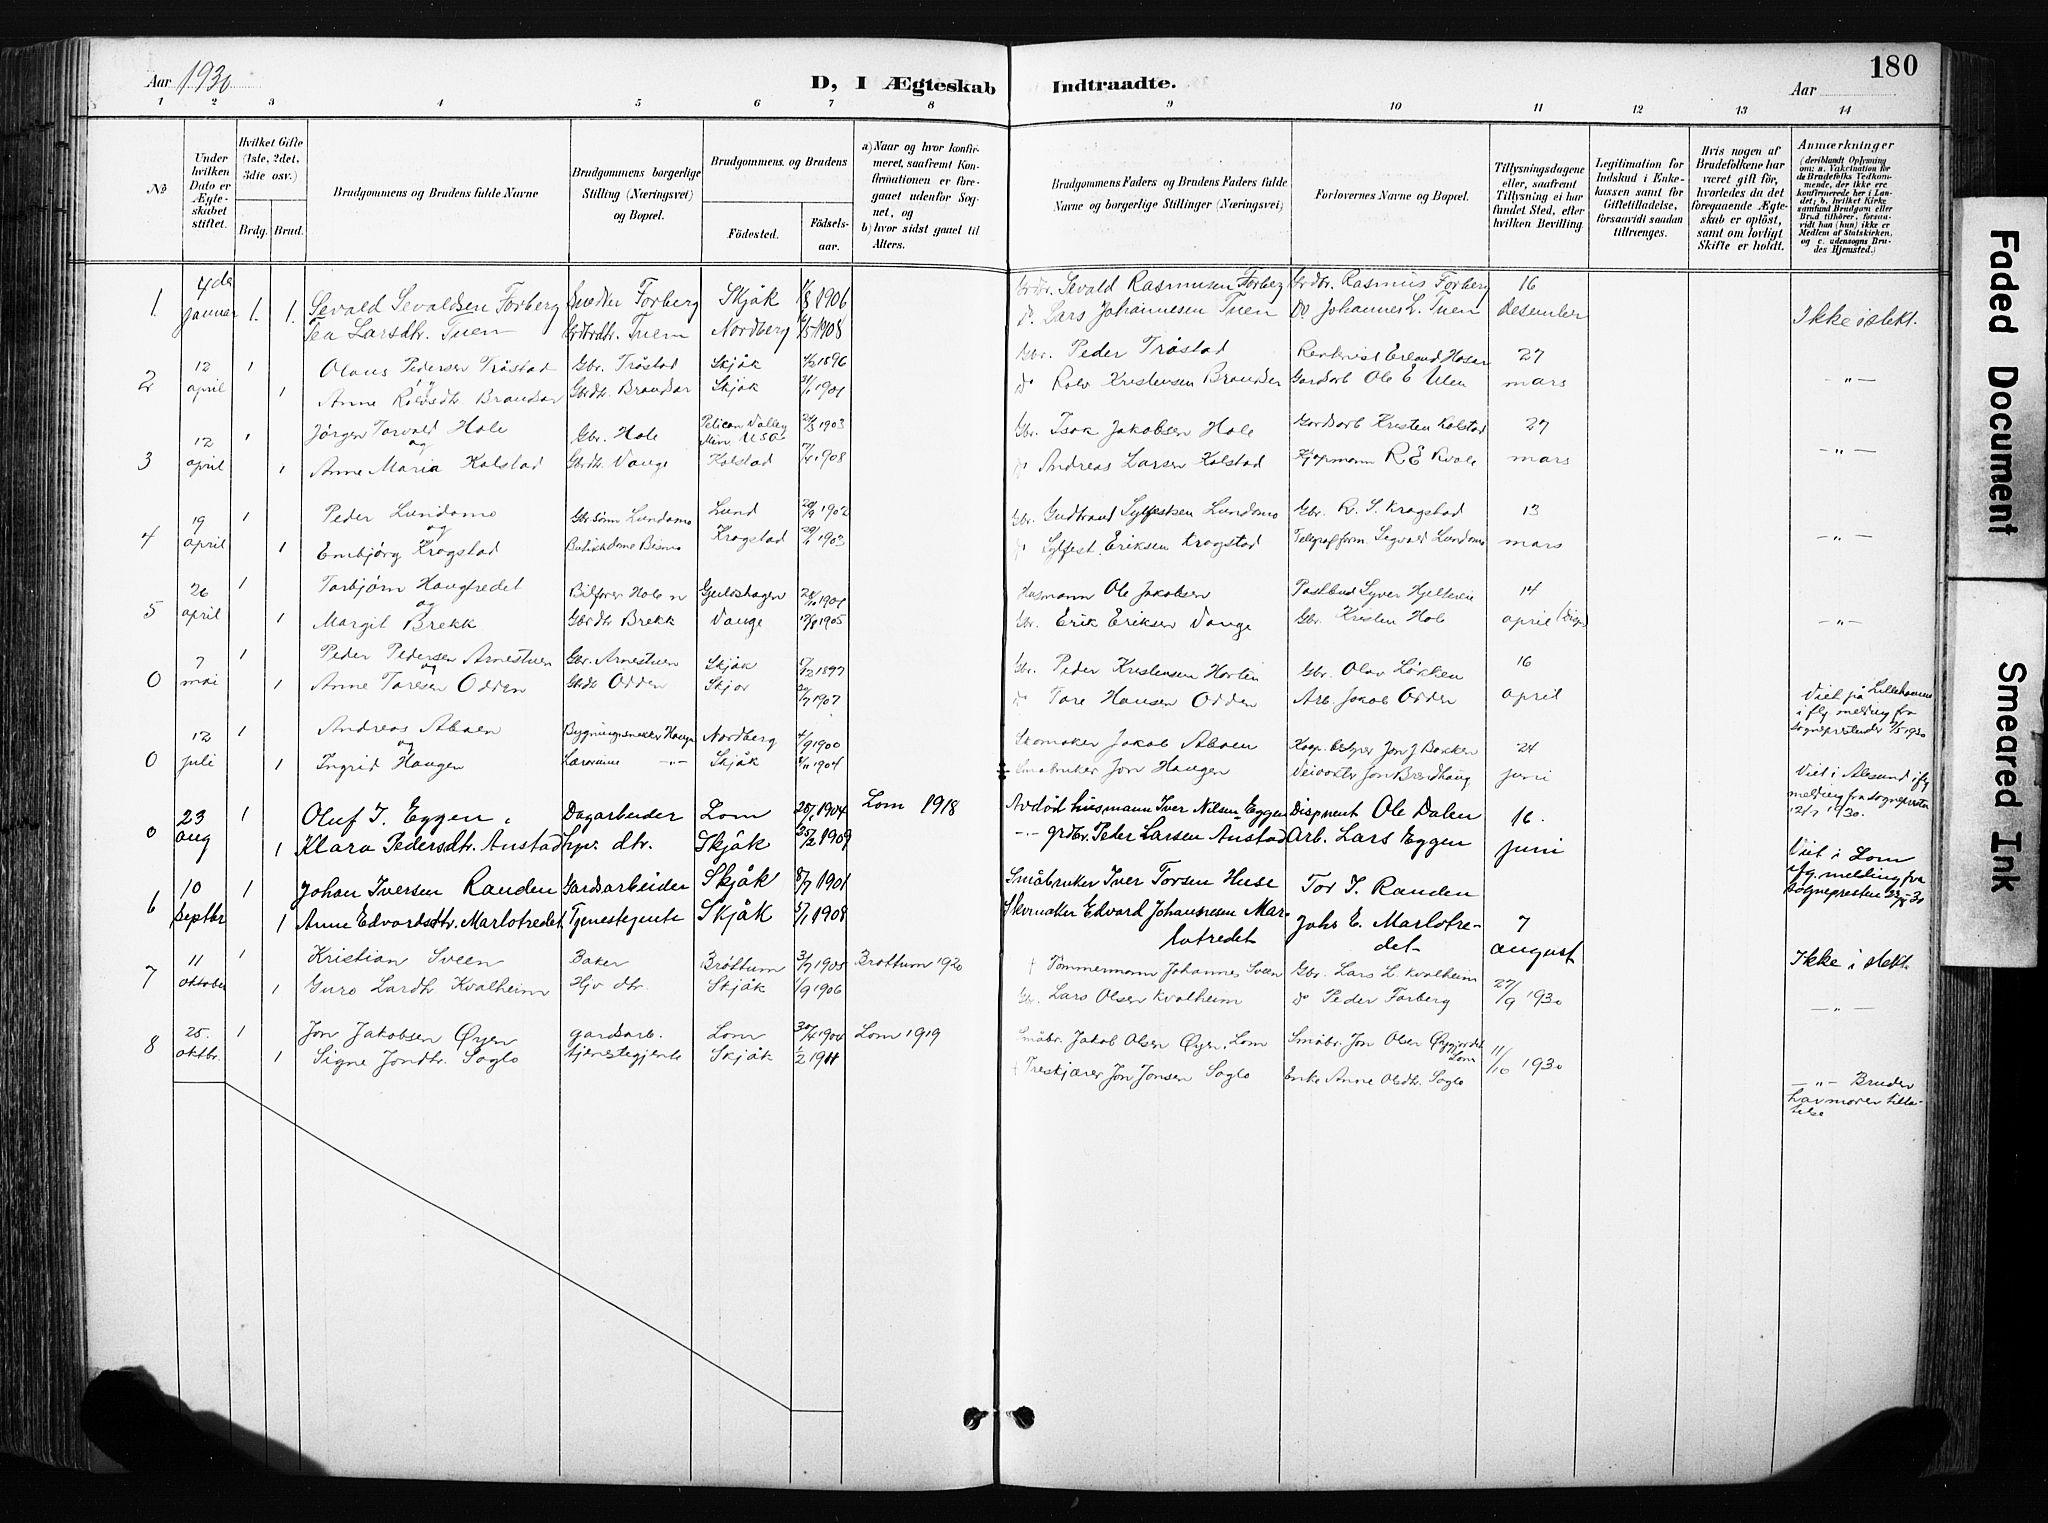 180
Aar 1930
D, I Ægteskab Indtraadte.
Aar
1 2 3 4 5 6 7 8 9 10 11 12 13 14
No
Under hvilken Dato er Ægteskabet stiftet.
Hvilket Gifte (1ste, 2det, 3die osv.)
Brdg. Brud.
Brudgommens og Brudens fulde Navne
Brudgommens borgerlige Stilling (Næringsvei) og Bopæl.
Brudgommens og Brudens
Födested.
Födselsaar.
a) Naar og hvor konfirmeret, saafremt Konfirmationen er foregaaet udenfor Sognet, og
b) hvor sidst gaaet til Alters.
Brudgommens Faders og Brudens Faders fulde Navne og borgerlige Stillinger (Næringsvei)
Forlovernes Navne og Bopæl.
Tillysningsdagene eller, saafremt Tillysning ei har fundet Sted, efter hvilken Bevilling.
Legitimation for Indskud i Enkekassen samt for Giftetilladelse, forsaavidt saadan tiltrænges.
Hvis nogen af Brudefolkene har været gift för, hvorledes da det foregaaende Ægteskab er oplöst, samt om lovligt Skifte er holdt.
Anmærkninger
(deriblandt Oplysning om: a. Vakcination for de Brudefolks Vedkommende, der ikke ere konfirmerede her i Landet; b. hvilket Kirkesamfund Brudgom eller Brud tilhörer, forsaavidt han (hun) ikke er Medlem af Statskirken, og c. udensogns Brudes Hjemsted.)
1 4de januar 1. 1. Sevald Sevaldsen Forberg Forberg Skjåk 1906 Sevald Rasmussen Forberg Grdbr. Rasmus Forberg 16 desember
Tea Larsdtr. Tuen Tuen Nordberg 1908 do. Lars Johannesen Tuen Do Johannes L. Tuen Ikke i slekt.
2 12 april 1 Olaus Pedersen Tråstad Gbr. Tråstad Skjåk 1896 Gbr. Peder Tråstad Erland 27 mars
1 Anne Rolvsdtr. Brandsar Gbrdtr. Brandsar Skjåk 1901 do Rolv Kristensen Gardarb Ole E Ulen -"-
3 12 april 1 Jørgen Torvald Hole Gbr. Hole Pelican Valley Min. USA 1903 Gbr. Isak Jakobsen Hole Gardsarb Kristen Kolstad 27 mars
og
1 Anne Maria Kolstad Gbrdtr. Vange Kolstad 1908 do Andreas Larsen Kolstad Kjøpmann R E Kvale -"-
4 19 april 1 Peder Lundamo Gbr sønn Lundamo Lund 1902 Gbr. Gudbrand Sylfestsen Lundamo Gbr. R. S. Kragstad 13 mars
og
1 Embjørg Kragstad Bismo Kragstad 1903 do Sylfest Eriksen Kragstad Sigvald Lundamo -"-
5 26 april 1 Torbjørn Haugtredet Hole 1901 Husmann Ole Jakobsen Postbud Syver 14 april (Disp)
og
1 Margit Brekk Gbrdtr Brekk Vange 1905 Gbr. Erik Eriksen Vange Gbr. Kristen Hole -"-
0 7 mai 1 Peder Pedersen Arnestuen Gbr. Arnestuen Skjåk 1897 Gbr. Peder Kristensen Gbr. Olav Løkken 16 april
og
1 Anne Taresen Odden Gbrdtr Odden Skjåk 1907 do Tore Hansen Odden Arb. Jakob Odden
Viet på Lillehammer iflg melding fra sogneprestender 7/5 1930
0 12 juli 1 Andreas Aboen Bygningssneker Haugen Nordberg 4/9 1900 Skomaker Jakob Aboen Koop. bestyrer Jon J Bakken 24 juni
og
1 Ingrid Haugen Lærerinne -"- Skjåk 1904 Småbruker Jon Haugen Veivokter Jon Brendhaug
Viet i Ålesund iflg melding fra sogneprsten 12/7 1930.
0 23 aug 1 Oluf I. Eggen Dagarbeider Lom 1904 Lom 1918 Avdød husmann Iver Nilsen Eggen Disponent Ole Dalen 16. juni
1 Klara Pedersdtr. Anstad hjv. dtr. Skjåk 1909 -"- grdbr. Peder Larsen Anstad Arb. Lars Eggen
Viet i Lom iflg. melding fra sognepresten 23/8-30
6 10 Septbr 1 Johan Iversen Randen Gardsarbeider Skjåk 8/7 1901 Småbruker Iver Torsen Huse Tor I. Randen 7 august
1 Anne Edvardsdtr. Marlotredet Tjenestejente Skjåk 1908 Skomaker Edvard Johannesen Marlotredet Johs E. Marlotredet
Ikke i slekt
7 11 oktober 1 Kristian Sveen Baker Brøttum 1905 Brøttum 1920 † Tømmermann Johannes Sveen Gbr. Lars L Kvalheim 27/9 1930
1 Guro Larsdtr. Kvalheim Hjv dtr. Skjåk 1/9 1906 Gbr. Lars Olsen Kvalheim do Peder Forberg -"-
8 25. oktbr. 1 Jon Jakobsen Øyen gardsarb. Lom 30/4 1904 Lom 1919 Småbr. Jakob Olsen Øyen, Lom Småbr. Jon Olsen Øygjordet Lom 11/10 1930
1 Signe Jonsdtr. Soglo tjenestegjente Skjåk 1/2 1911 † Treskjærer Jon Jonsen Soglo Enke Anne Olsdtr. Soglo
-"- Bruden har morens tillatelse
Faded Document
Smeared Ink